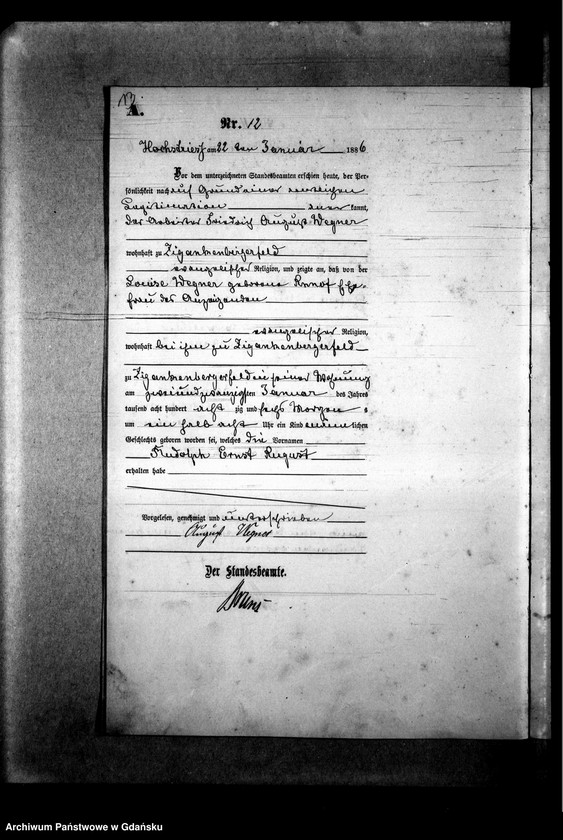 13
A.
Nr. 12
Hochstriess am 22 ten Januar 1886
Vor dem unterzeichneten Standesbeamten erschien heute, der Per-
sönlichkeit nach auf Grund einer
Legitimation kannt,
der Arbeiter Friedrich August Wegner
wohnhaft zu Zigankenbergerfeld
evangelischer Religion, und zeigte an, daß von der
Louise Wegner geborene Ehe-
frau des Anzeigenden
evangelischer Religion,
wohnhaft bei ihm zu Zigankenbergerfeld
zu Zigankenbergerfeld in seiner Wohnung
am zweiundzwanzigsten Januar des Jahres
tausend acht hundert acht zig und sechs Morgens
um ein halb acht Uhr ein Kind männlichen
Geschlechts geboren worden sei, welches die Vornamen
Rudolph Ernst August
erhalten habe
Vorgelesen, genehmigt und unterschrieben
August Wegner
Der Standesbeamte.
Archiwum Państwowe w Gdańsku